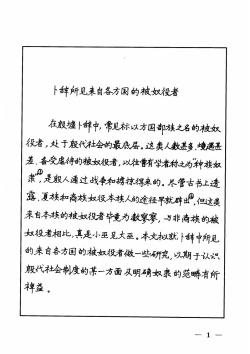 卜辞所见来自各方国的被奴役者
在殷墟卜辞中,常见标以方国部族之名的被奴
役者,处于殷代社会的最底层。这类人数甚多、境遇甚
差、备受虐待的被奴役者,以往曾有学者称之为“种族奴
隶”①,是殷人通过战争和掳掠得来的。尽管古书上透
露,夏族和商族奴役本族人的途径早就辟出②,但这类
来自本族的被奴役者毕竟为数寥寥,与非商族的被
奴役者相比,真是小巫见大巫。本文拟就卜辞中所见
的来自各方国的被奴役者做一些研究,以期于认识
殷代社会制度的某一方面及明确奴隶的范畴有所
裨益。
— 1 —